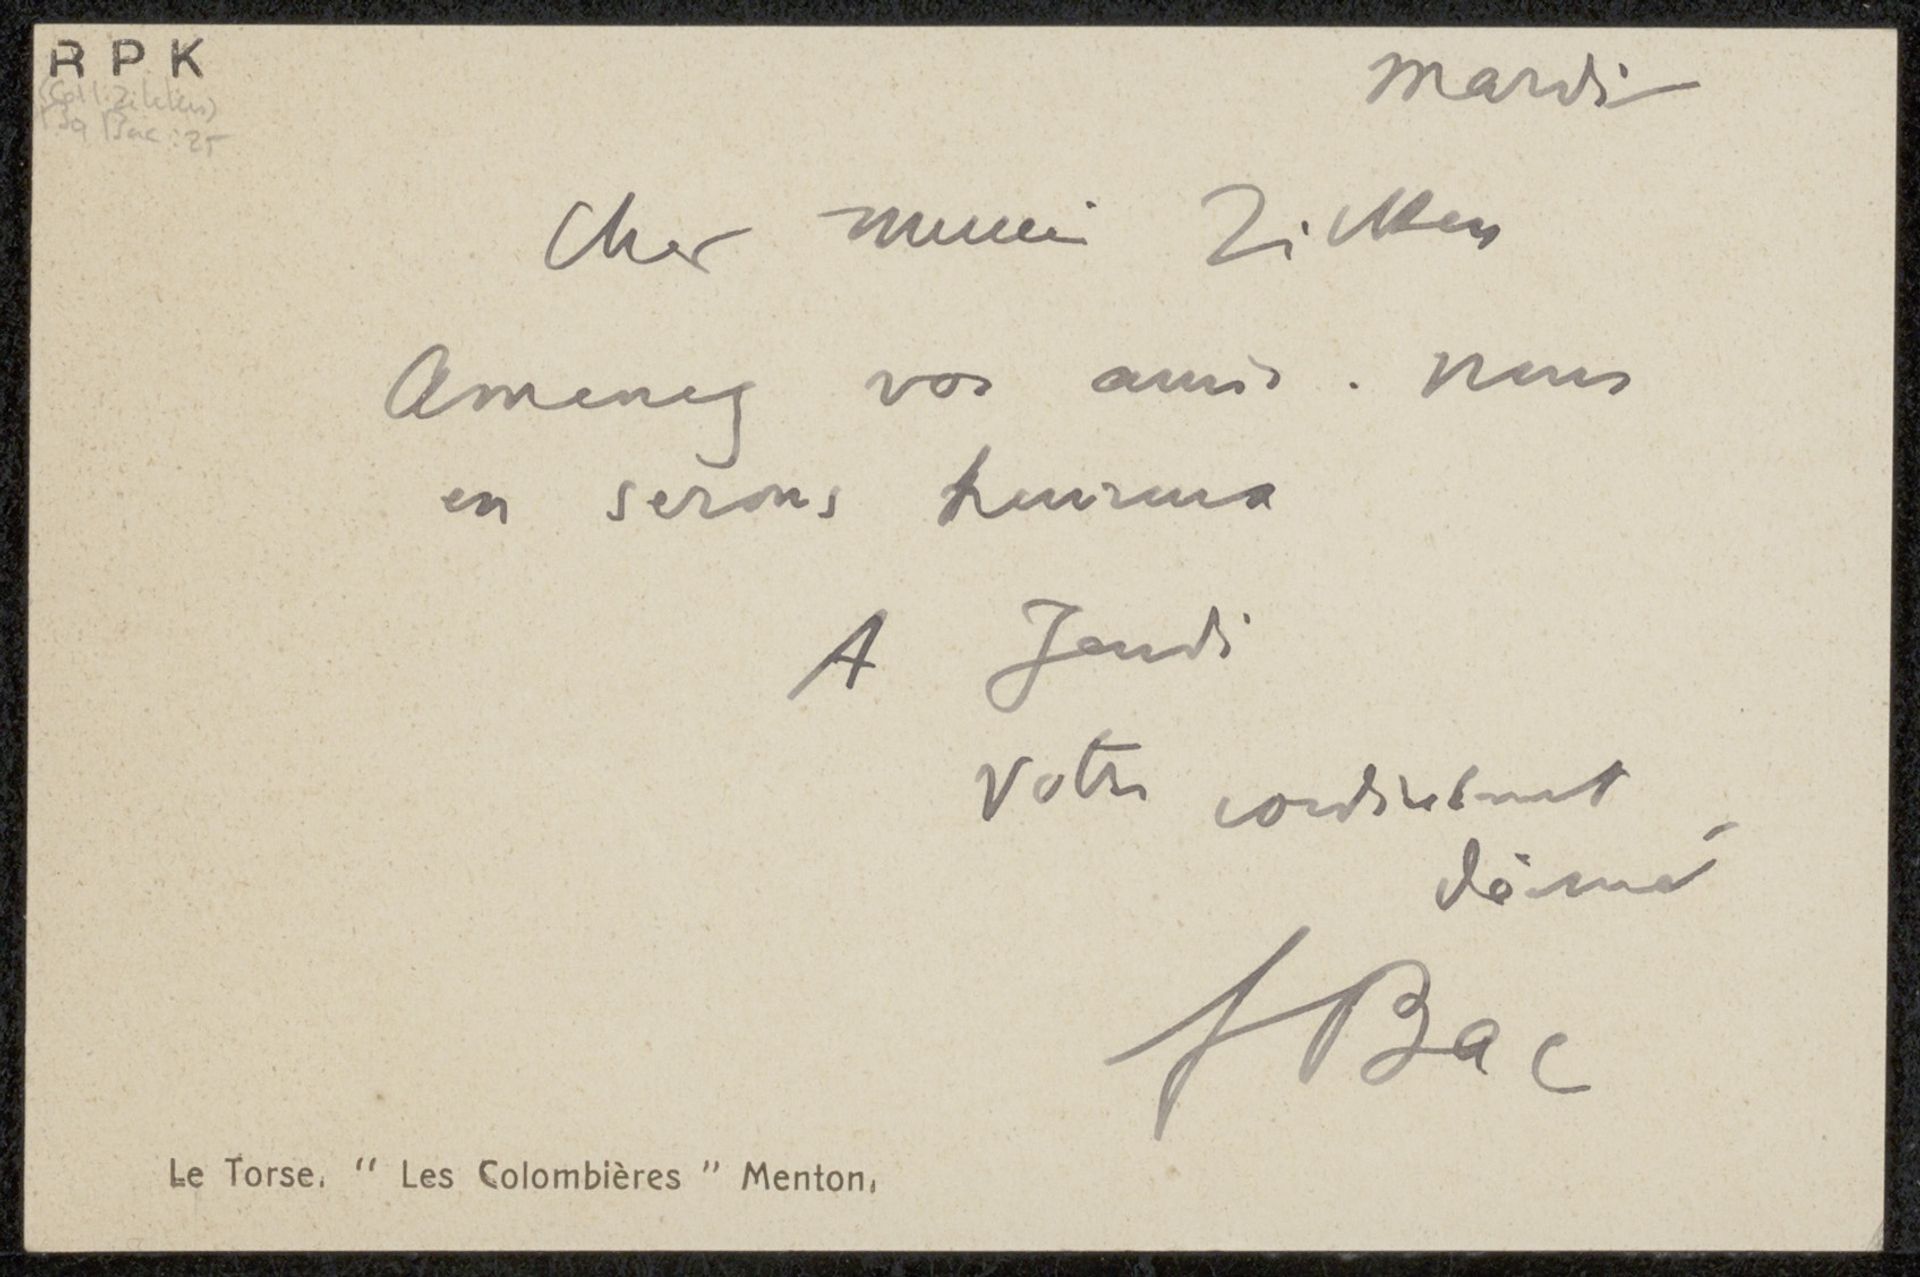 RPK
(Coll Zilcken)
Bac: 25
mardi
Cher Zilcken
Amenez vos amis. nous
en serons heureux
A Jeudi
Votre cordialement
F Bac
Le Torse. “ Les Colombières ” Menton.